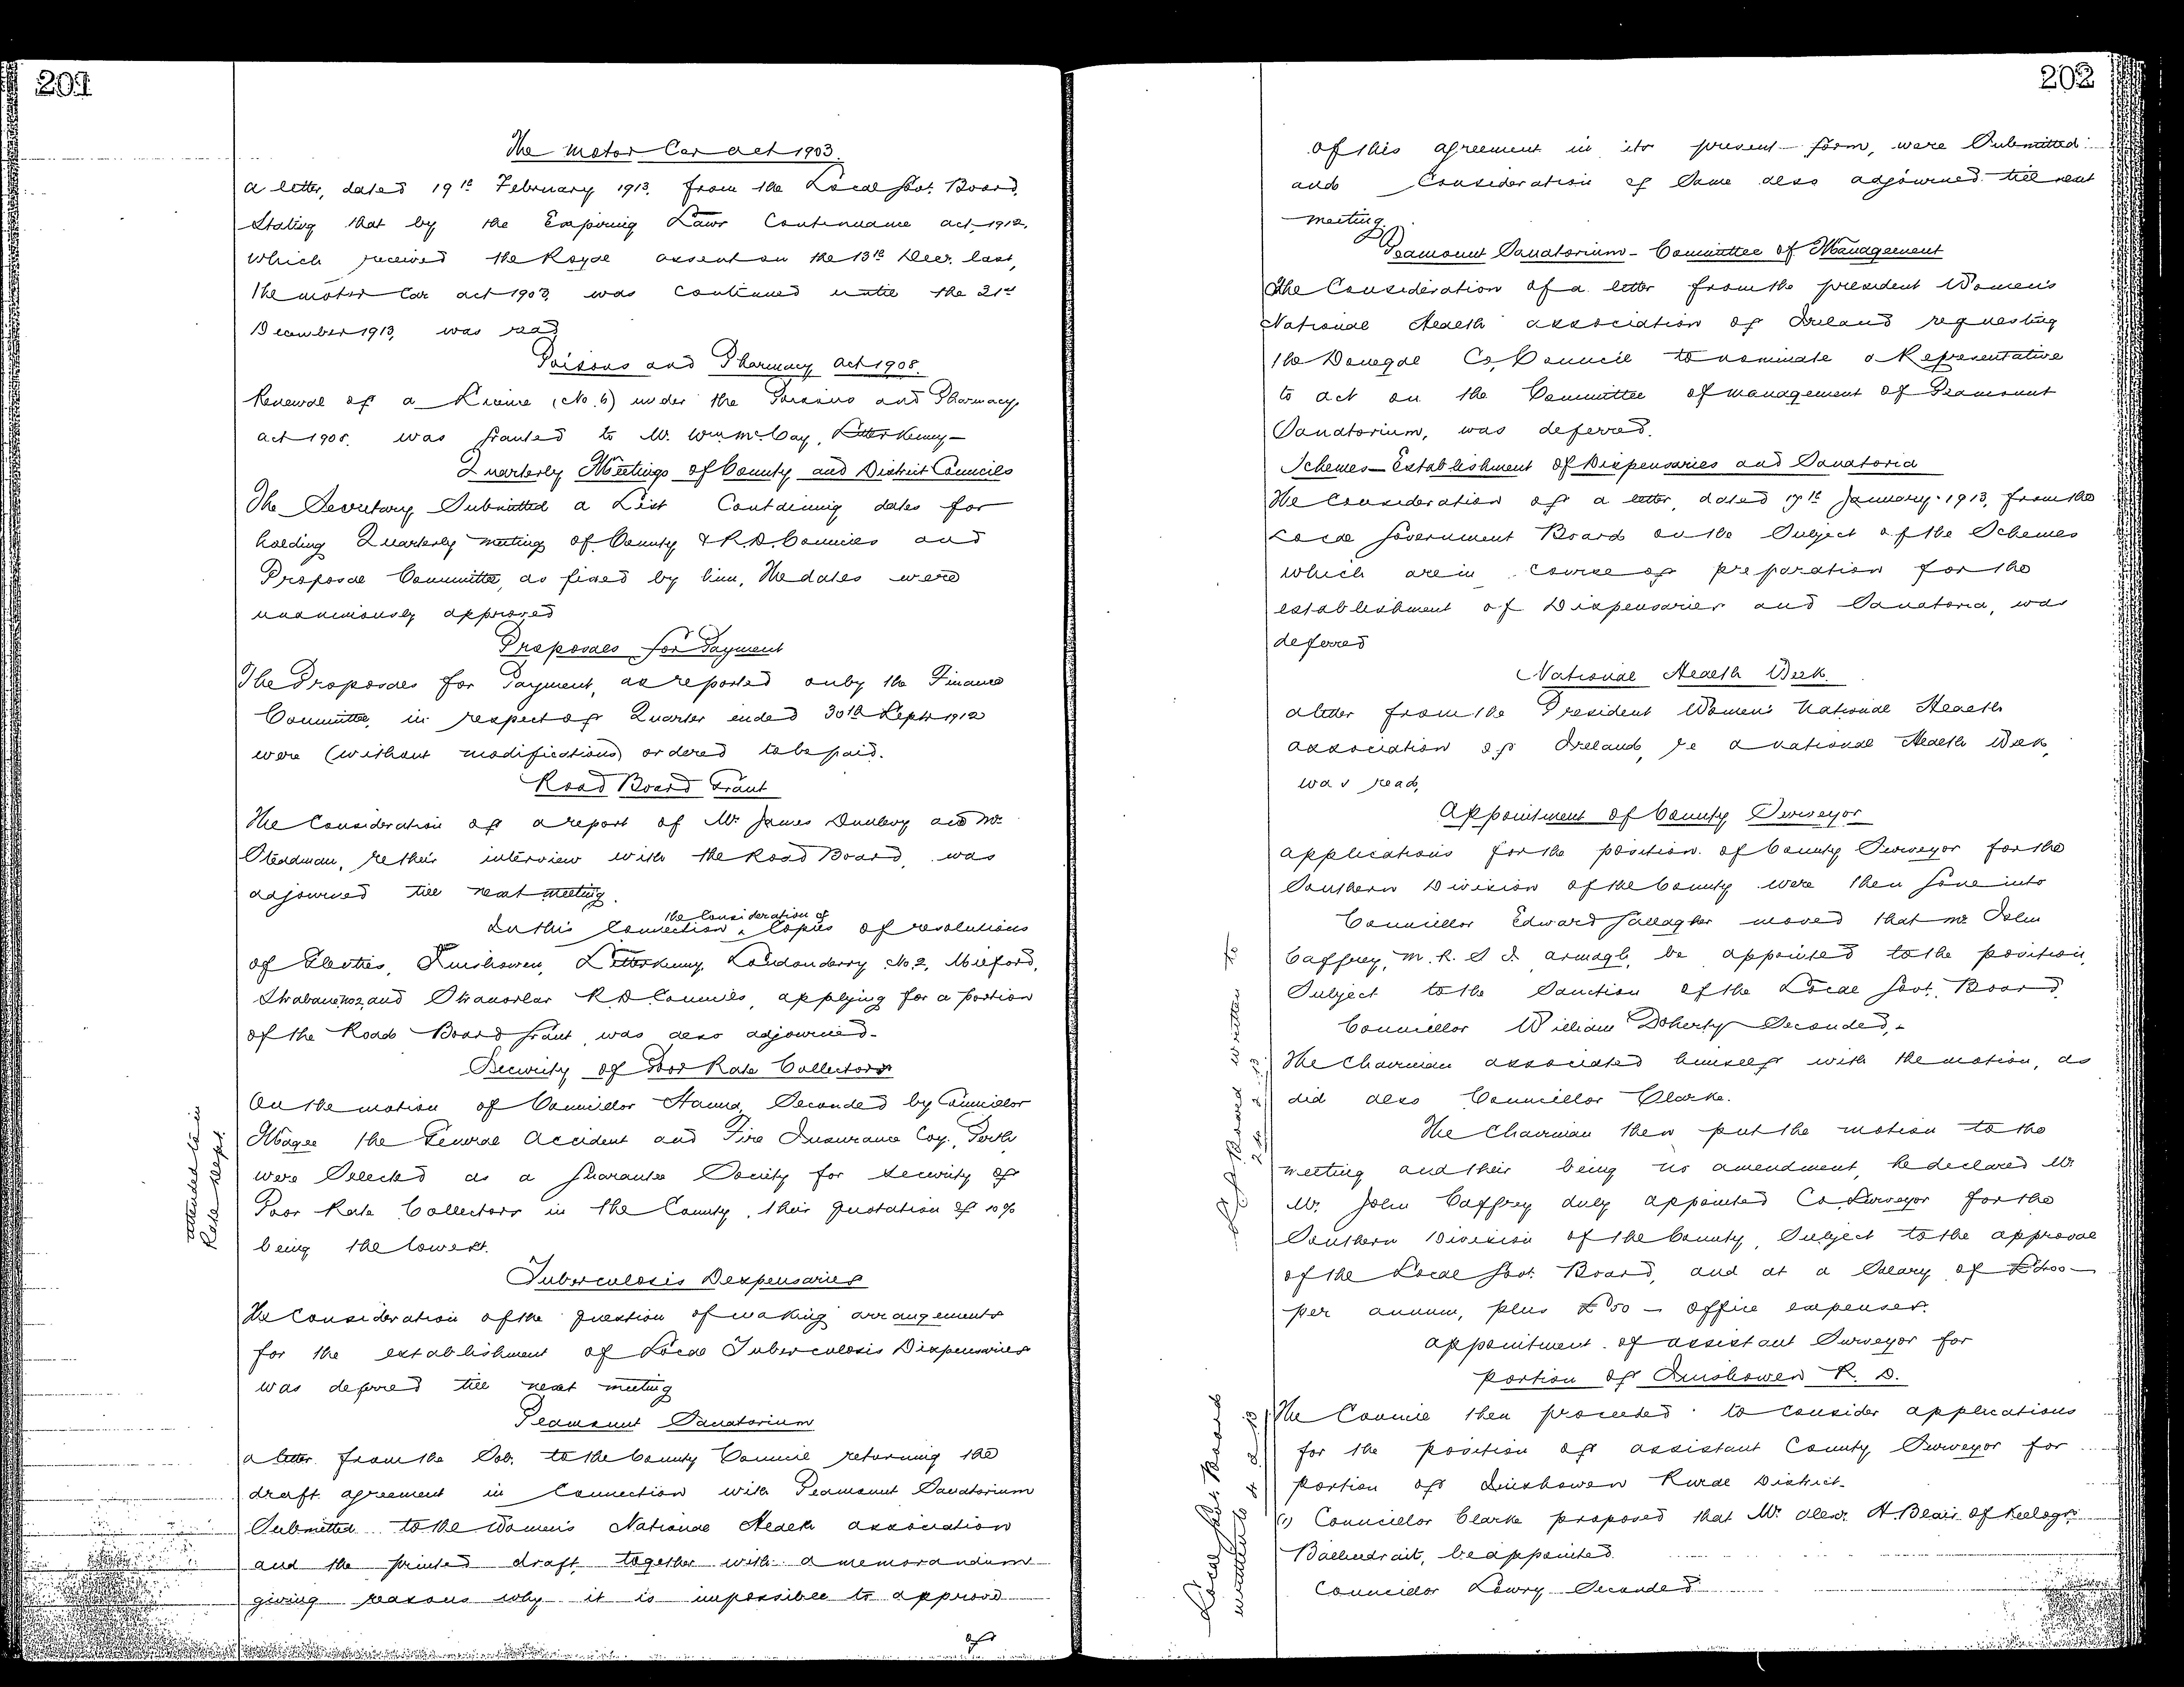 201
The Motor Car Act 1903.
A letter, dated 19th February 1913, from the Local Govt. Board,
Stating that by the Expiring Laws Continuance Act, 1912,
which received the Royal assent on the 13th Decr. last,
the Motor Car Act 1903, was continued until the 31st
December 1913, was read
Poisons and Pharmacy Act 1908.
Renewal of a Licence (No. 6) under the Poisons and Pharmacy
Act 1908. was granted to Mr. Wm. McCay, Letterkenny—
Quarterly Meetings of County and District Councils
The Secretary Submitted a List Containing dates for
holding Quarterly meeting of County & R.D. Councils and
Proposal Committee, as fixed by him, The dates were
unanimously approved
Proposals for Payment
The Proposals for Payment, as reported on by the Finance
Committee, in respect of Quarter ended 30th Septr 1912
were (without modifications) ordered to be paid.
Road Board Grant
The Consideration of a report of Mr. James Dunlevy and Mr.
Steadman, re their interview with the Road Board, was
adjourned till next meeting.
In this Connection, the Consideration of Copies of resolutions
of Glenties, Inishowen, Letterkenny, Londonderry No. 2, Milford,
Strabane No 2, and Stranorlar R D Councils, applying for a portion
of the Road Board Grant, was also adjourned—
Security of Poor Rate Collectors
On the motion of Councillor Hanna, Seconded by Councillor
Magee the General Accident and Fire Insurance Coy., Perth
were Selected as a Guarantee Society for Security of
Poor Rate Collectors in the County, their quotation of 10%
being the lowest.
attended to in
Rate Dept.
Tuberculosis Dispensaries
The Consideration of the question of making arrangements
for the establishment of Local Tuberculosis Dispensaries
was deferred till next meeting
Peamount Sanatorium
A letter from the Sol. to the County Council returning the
draft agreement in Connection with Peamount Sanatorium
Submitted to the Women's National Health Association
and the printed draft, together with a memorandum
giving reasons why it is impossible to approve
of
202
of this agreement in its present form, were Submitted
and Consideration of Same also adjourned till next
meeting.
Peamount Sanatorium - Committee of Management
The Consideration of a letter from the president Women's
National Health Association of Ireland requesting
the Donegal Co, Council to nominate a Representative
to act on the Committee of management of Peamount
Sanatorium, was deferred.
Schemes— Establishment of Dispensaries and Sanatoria
The Consideration of a letter, dated 17th January 1913, from the
Local Government Board on the Subject of the Schemes
which are in course of preparation for the
establishment of Dispensaries and Sanatoria, was
deferred
National Health Week.
A letter from the President Women's National Health
Association of Ireland, re a National Health Week,
was read,
Appointment of County Surveyor
Applications for the position of County Surveyor for the
Southern Division of the County were then gone into
Councillor Edward Gallagher moved that Mr John
Caffrey, M. R. S. I. Armagh, be appointed to the position,
Subject to the Sanction of the Local Govt. Board,
Councillor William Doherty Seconded,—
The Chairman associated himself with the motion, as
did also Councillor Clarke.
The Chairman then put the motion to the
meeting and their being no amendment, he declared Mr
Mr. John Caffrey duly appointed Co. Surveyor for the
Southern Division of the County, Subject to the approval
of the Local Govt. Board, and at a Salary of £400—
per annum, plus £50 — office expenses.
L G Board written to
Appointment of Assistant Surveyor for
portion of Inishowen R. D.
The Council then proceeded to consider applications
for the position of assistant County Surveyor for
portion of Inishowen Rural District—
(1) Councillor Clarke proposed that Mr. Alexr. A. Blair of
be appointed.
Councillor Lowry Seconded
Local Gov. Board
written to